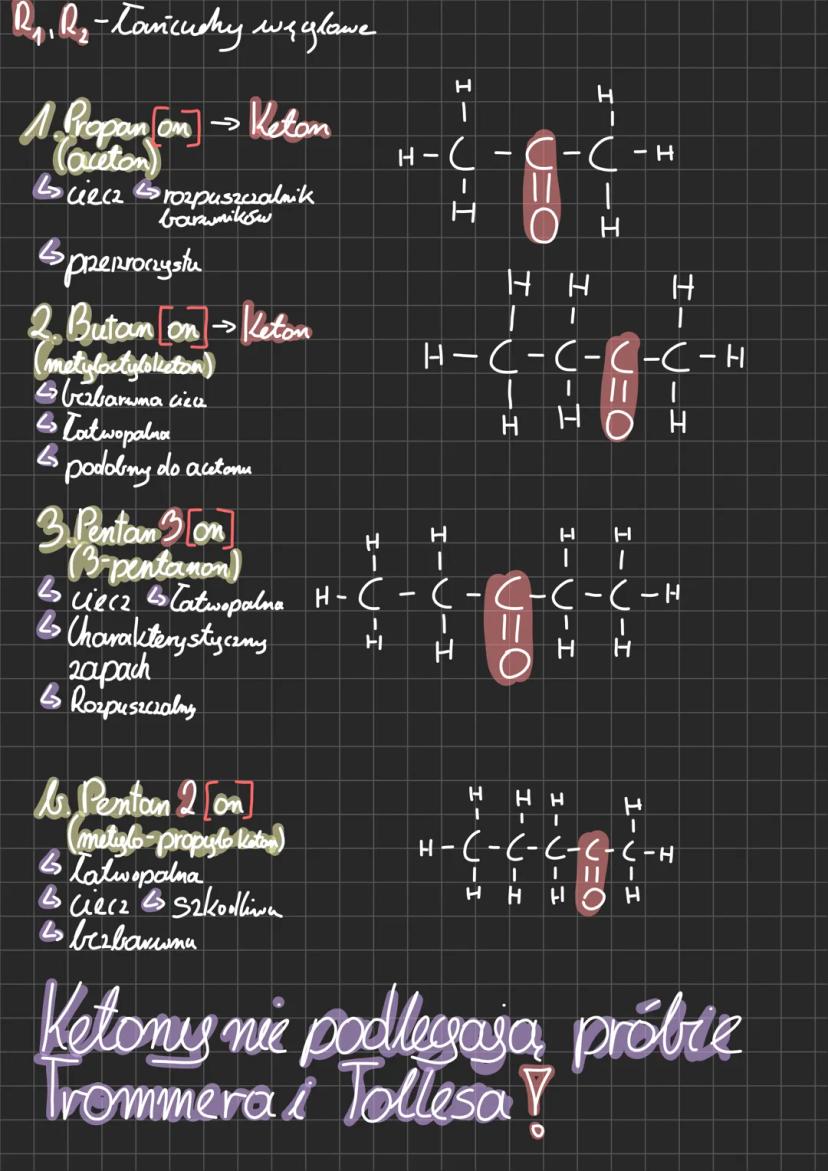 R₁, R₂ - Łańcuchy węglowe
1. Propan [on] → Keton
(aceton)
↳ ciecz ↳ rozpuszczalnik
barwników
↳ przezroczysta
H H
H - C - C - C - H
H O H
2. Butan [on] → Keton
(metyloetyloketon)
↳ bezbarwna ciecz
↳ Łatwopalna
↳ podobny do acetonu
H H H
H - C - C - C - C - H
H H O H
3. Pentan 3 [on]
(3-pentanon)
↳ ciecz ↳ Łatwopalna
↳ Charakterystyczny
zapach
↳ Rozpuszczalny
H H H H
H - C - C - C - C - C - H
H H O H H
b. Pentan 2 [on]
(metylo-propylo keton)
↳ Łatwopalna
↳ ciecz ↳ szkodliwa
↳ bezbarwna
H H H H
H - C - C - C - C - C - H
H H H O H
Ketony nie podlegają próbie
Trommera i Tollesa!